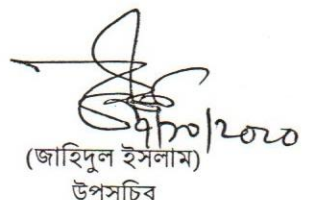 /১০/২০২০
(জাহিদুল ইসলাম)
উপসচিব